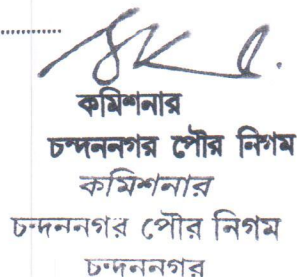 কমিশনার
চন্দননগর পৌর নিগম
কমিশনার
চন্দননগর পৌর নিগম
চন্দননগর